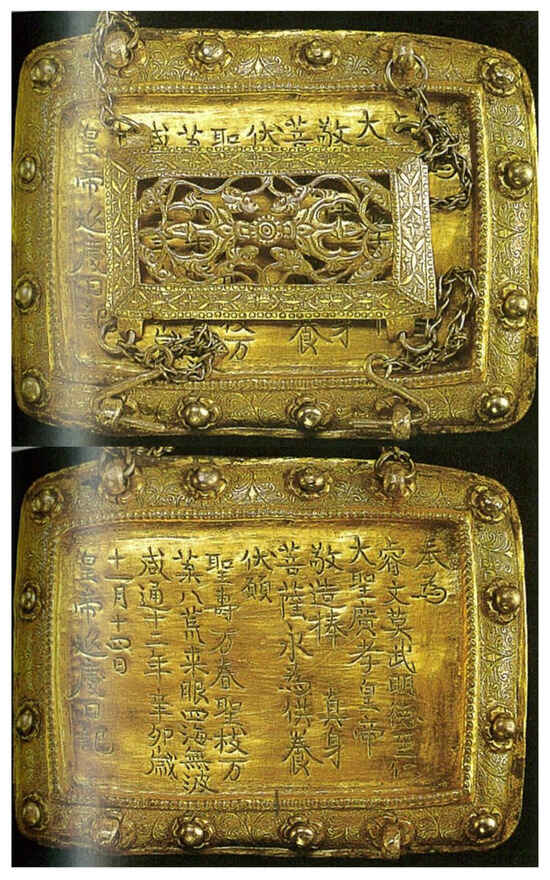 大
敬 身
菩 養
伏
聖 枝万
葉
咸 歲
皇帝延慶日
奉為
睿文英武明德至仁
大聖廣孝皇帝
敬造捧真身
菩薩永為供養
伏願
聖壽万春聖枝万
葉八荒來服四海無波
咸通十二年辛卯歲
十一月十四日
皇帝延慶日記